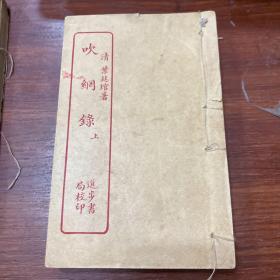 清 葉廷琯著
吹網錄 上
進步書局校印